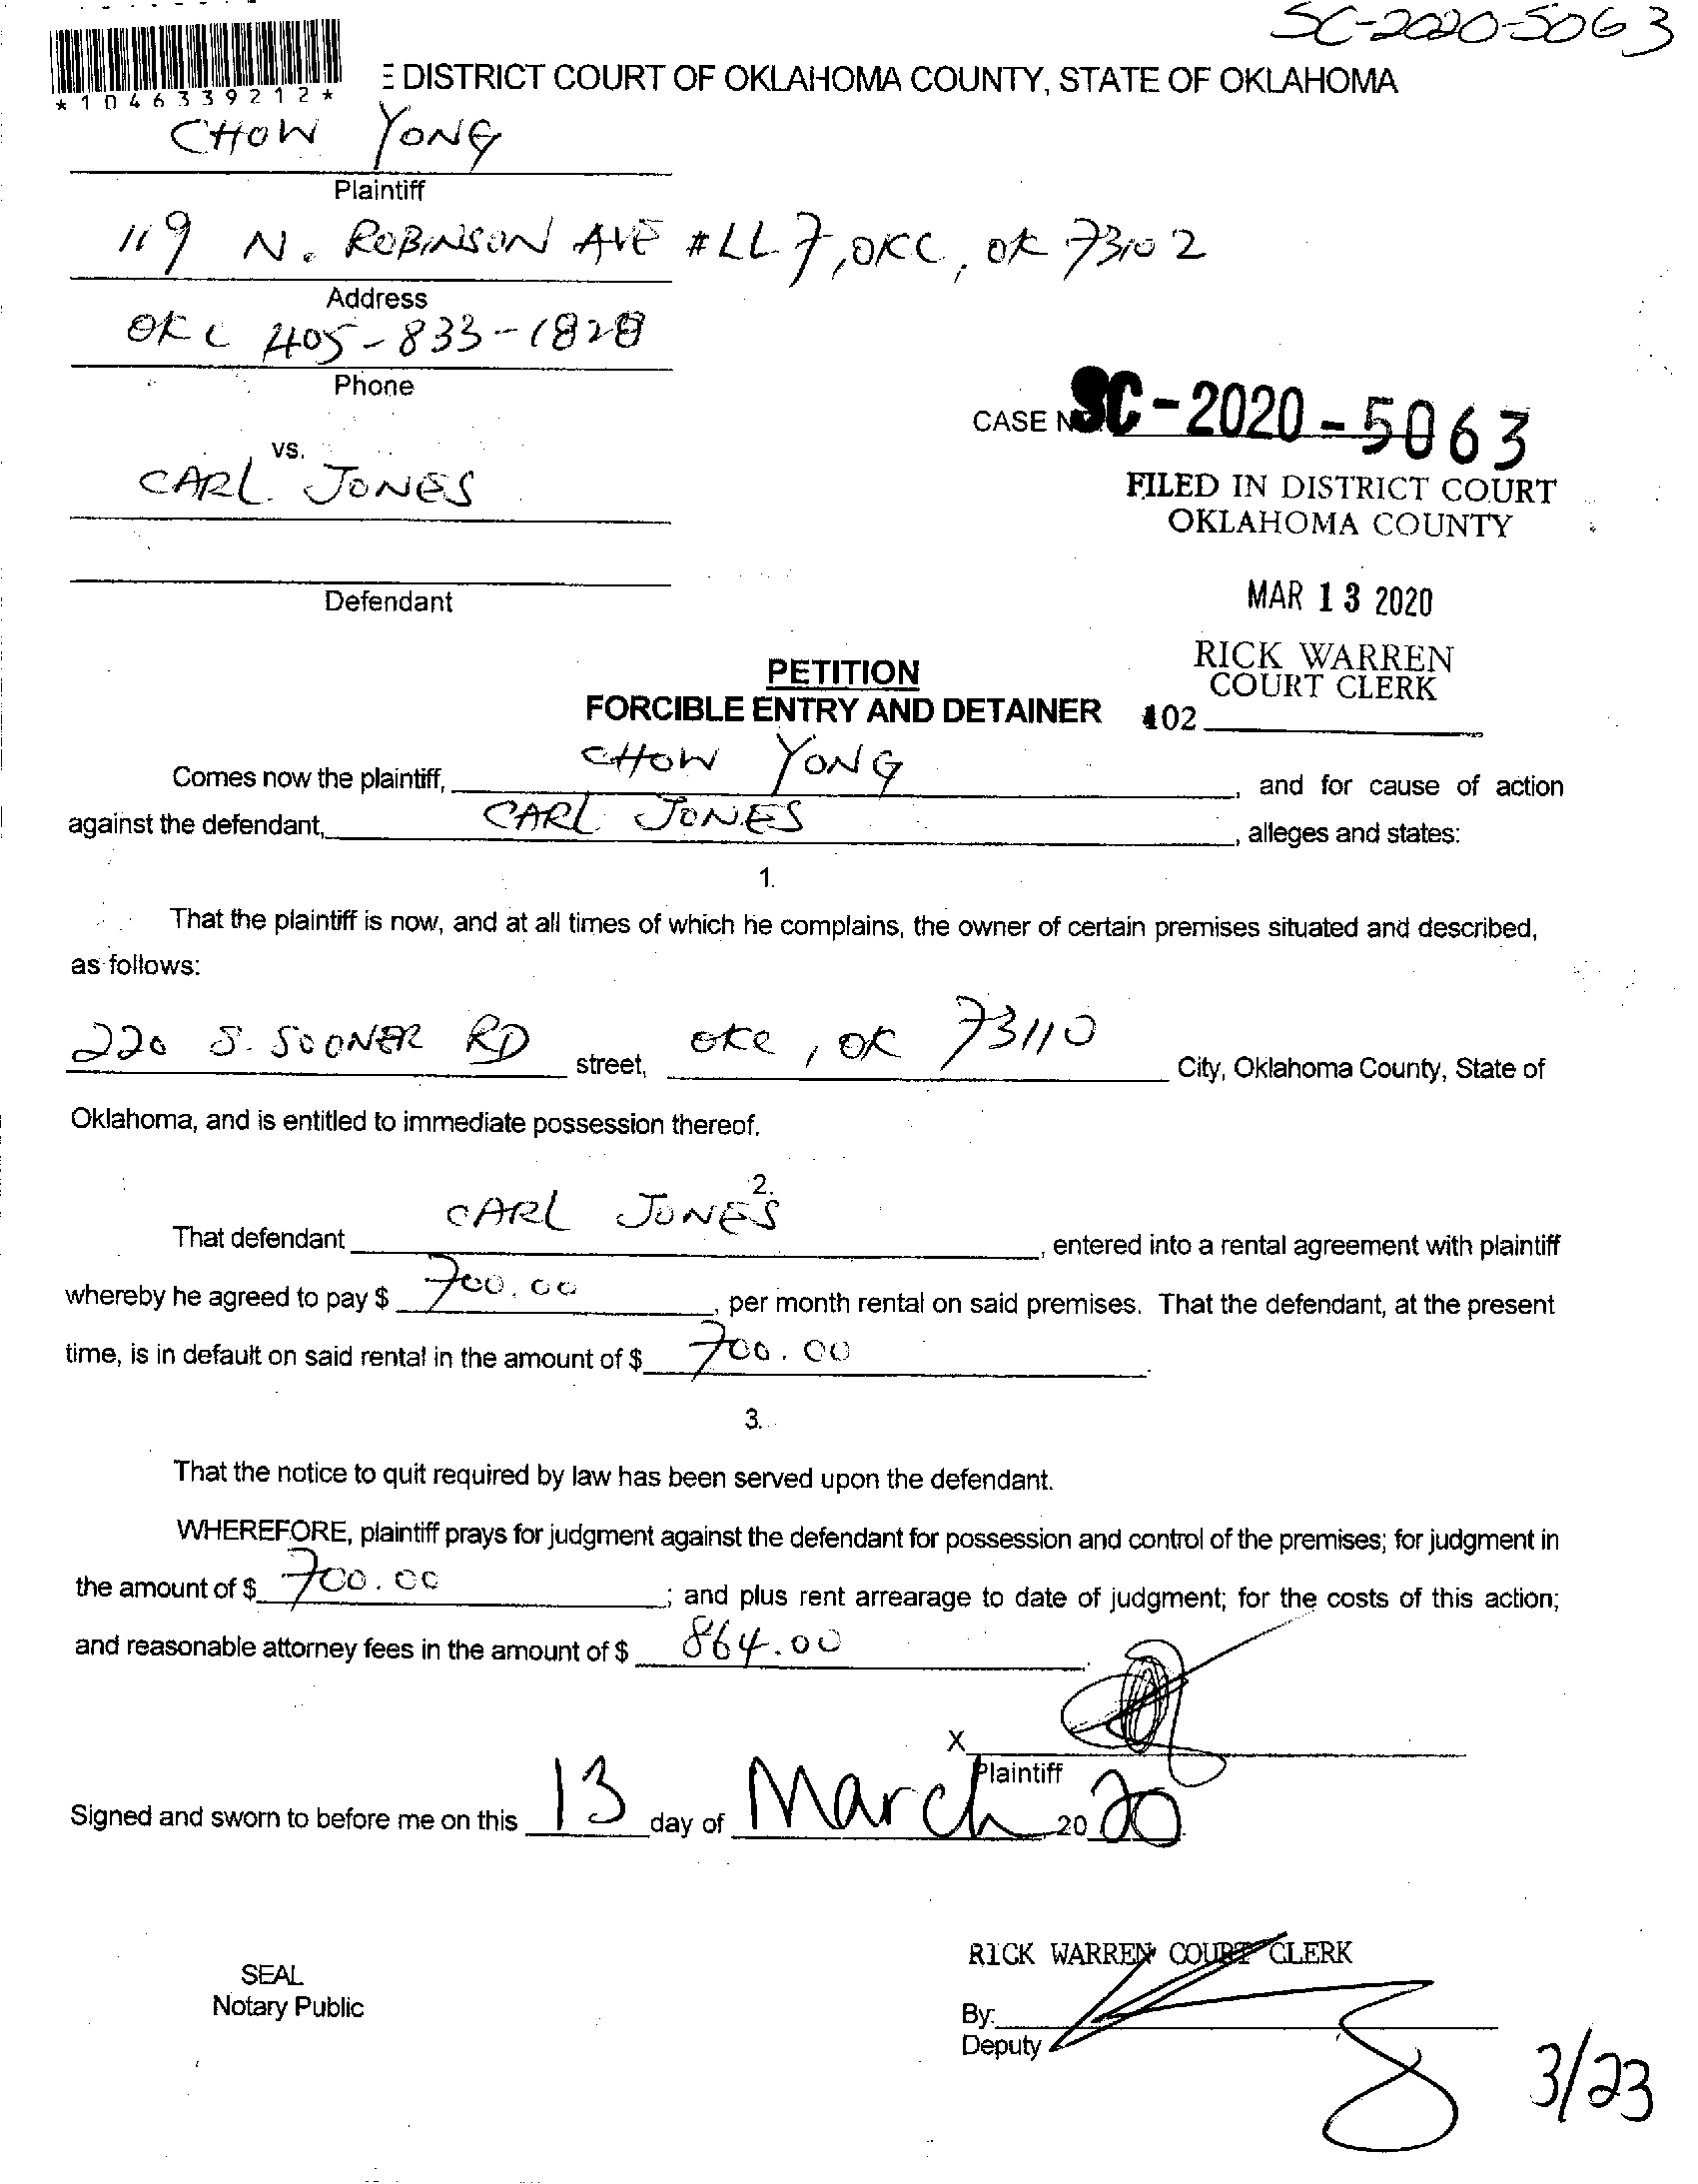 SC-2020-5063
*1046339212*
E DISTRICT COURT OF OKLAHOMA COUNTY, STATE OF OKLAHOMA
CHOW YONG
Plaintiff
119 N. ROBINSON AVE #LL7, OKC, OK 73102
Address
OKC 405-833-1828
Phone
CASE N SC-2020-5063
vs.
CARL JONES
FILED IN DISTRICT COURT
OKLAHOMA COUNTY
Defendant
MAR 13 2020
RICK WARREN
COURT CLERK
PETITION
FORCIBLE ENTRY AND DETAINER
102
Comes now the plaintiff, CHOW YONG, and for cause of action
against the defendant, CARL JONES, alleges and states:
1.
That the plaintiff is now, and at all times of which he complains, the owner of certain premises situated and described,
as follows:
220 S. SOONER RD street, OKC, OK 73110 City, Oklahoma County, State of
Oklahoma, and is entitled to immediate possession thereof.
2.
That defendant CARL JONES, entered into a rental agreement with plaintiff
whereby he agreed to pay $ 700.00, per month rental on said premises. That the defendant, at the present
time, is in default on said rental in the amount of $ 700.00.
3.
That the notice to quit required by law has been served upon the defendant.
WHEREFORE, plaintiff prays for judgment against the defendant for possession and control of the premises; for judgment in
the amount of $ 700.00; and plus rent arrearage to date of judgment; for the costs of this action;
and reasonable attorney fees in the amount of $ 864.00.
X
Plaintiff
Signed and sworn to before me on this 13 day of March 2020.
RICK WARREN COURT CLERK
SEAL
Notary Public
By:
Deputy
3/23